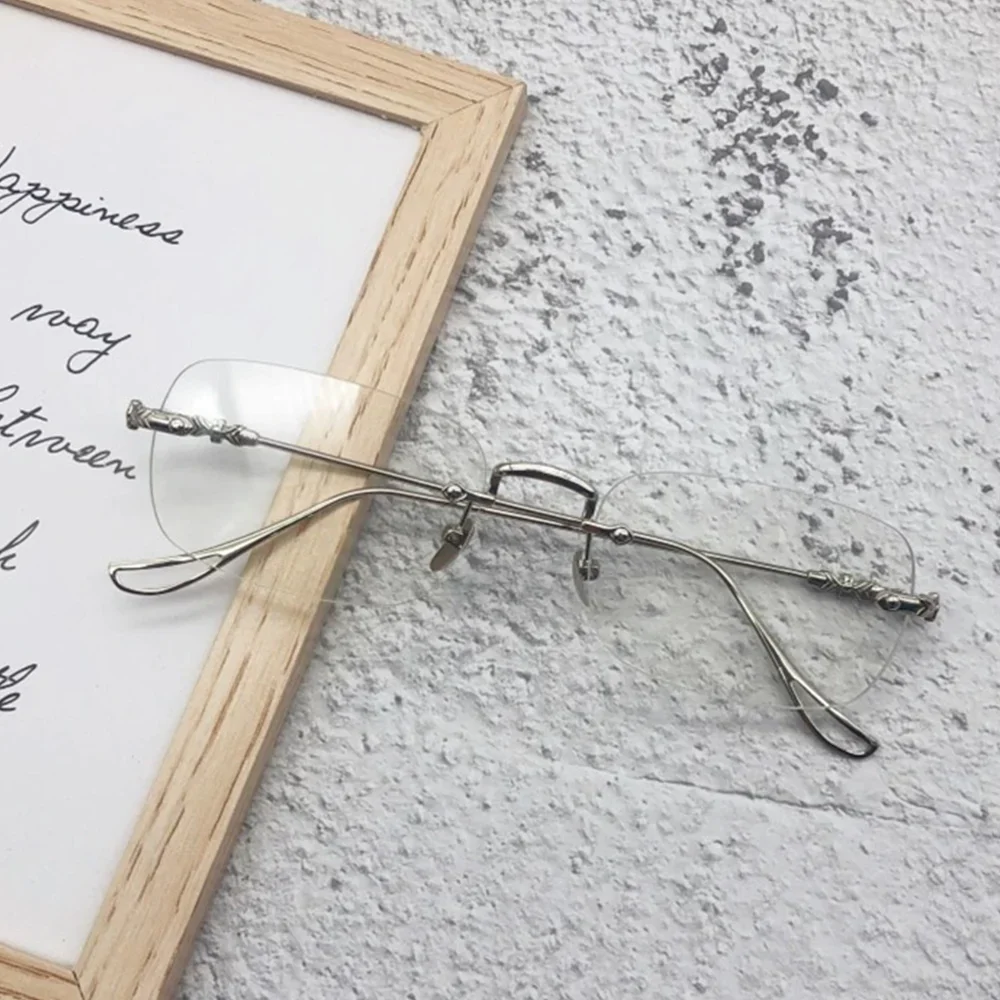 appiness
way
etween
k